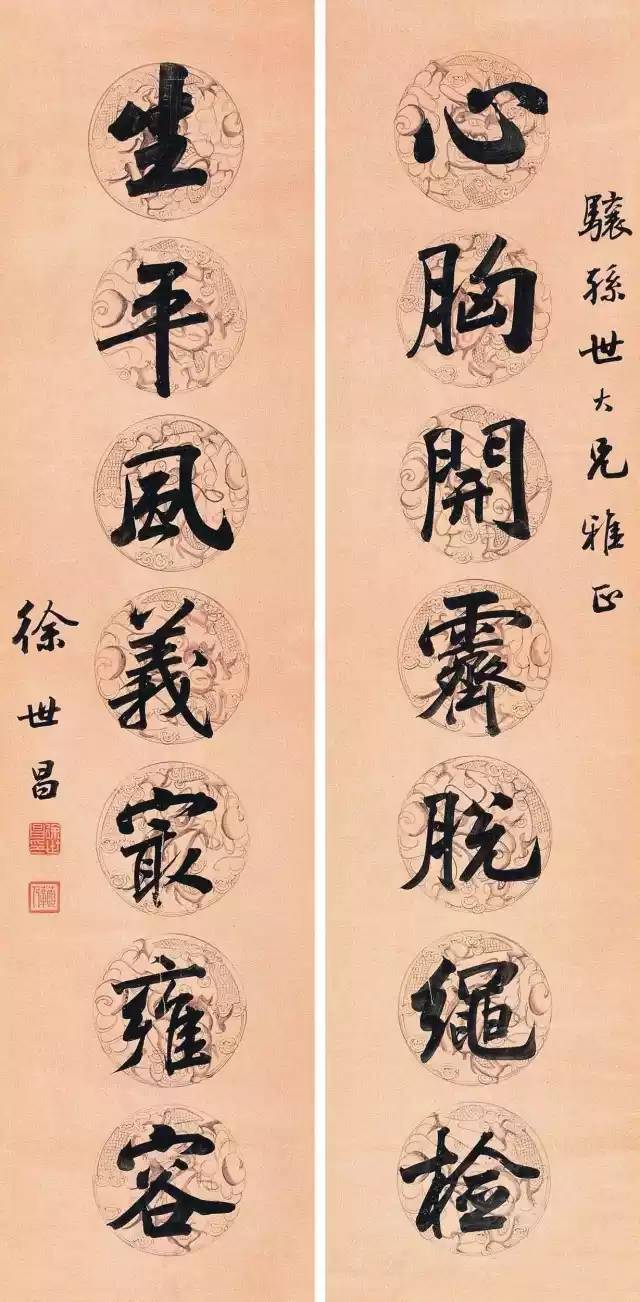 驤孫世大兄雅正
心胸開霽脫繩檢
生平風義㝡雍容
徐世昌